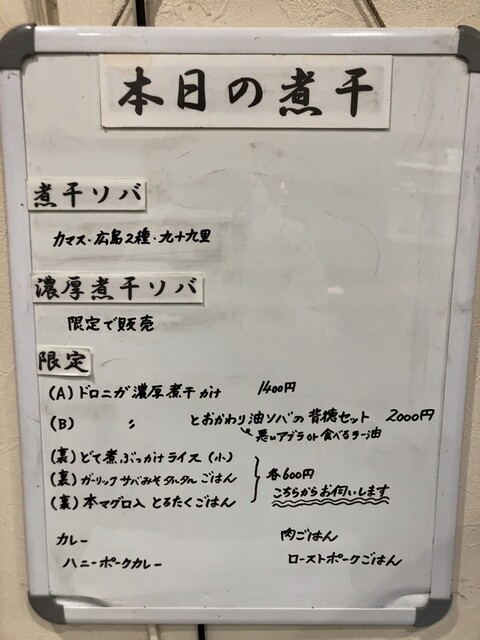 本日の煮干
煮干ソバ
カマス・広島2種・九十九里
濃厚煮干ソバ
限定で販売
限定
(A) ドロニガ濃厚煮干かけ 1400円
(B) 〃 とおかわり油ソバの背徳セット 2000円
悪いアブラ or 食べるラー油
(裏) どて煮ぶっかけライス (小)
(裏) ガーリックサバみそタルタルごはん 各600円
(裏) 本マグロ入 とろたくごはん こちらからお伺いします
カレー 肉ごはん
ハニーポークカレー ローストポークごはん